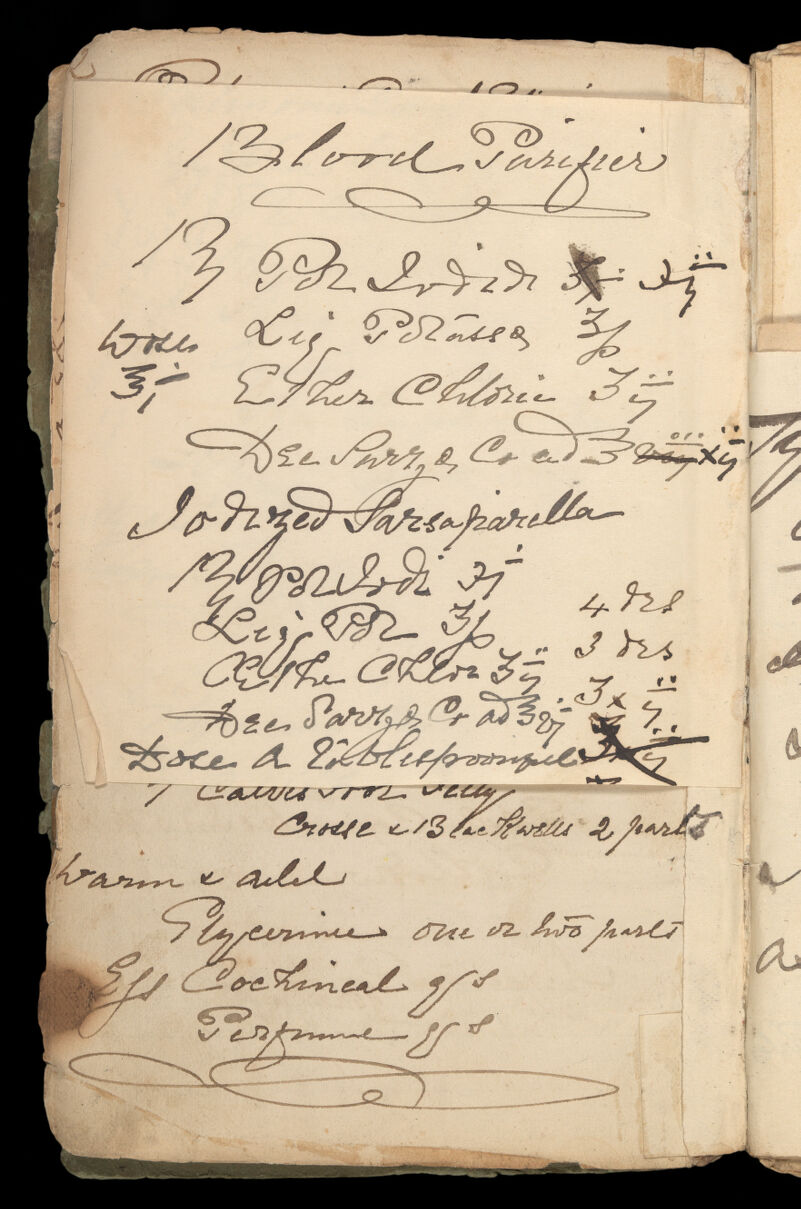 2
Blood Purifier
℞ Pot Iodidi ʒij
Liq Potassæ ℥ss
Dose
ʒi
Ether Chloric ʒij
Dec Sarzæ Co ad ℥ viij xij
Iodized Sarsaparilla
℞ Pot Iodi ʒj
Liq Pot ʒss 4 des
Æther Chlor ʒij 3 des
Dec Sarzæ Co ad ℥vj ℥xij
Dose A Tablespoonful
Calves Foot Jelly
Crosse & Blackwells 2 parts
Warm & add
Glycerine one or two parts
Ess Cochineal qs
Perfume qs